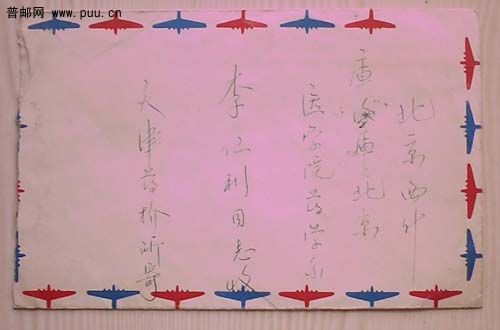 普邮网
www.puu.cn
北京西什
库 北京
医学院药学系
李仁利同志收
天津药检所寄